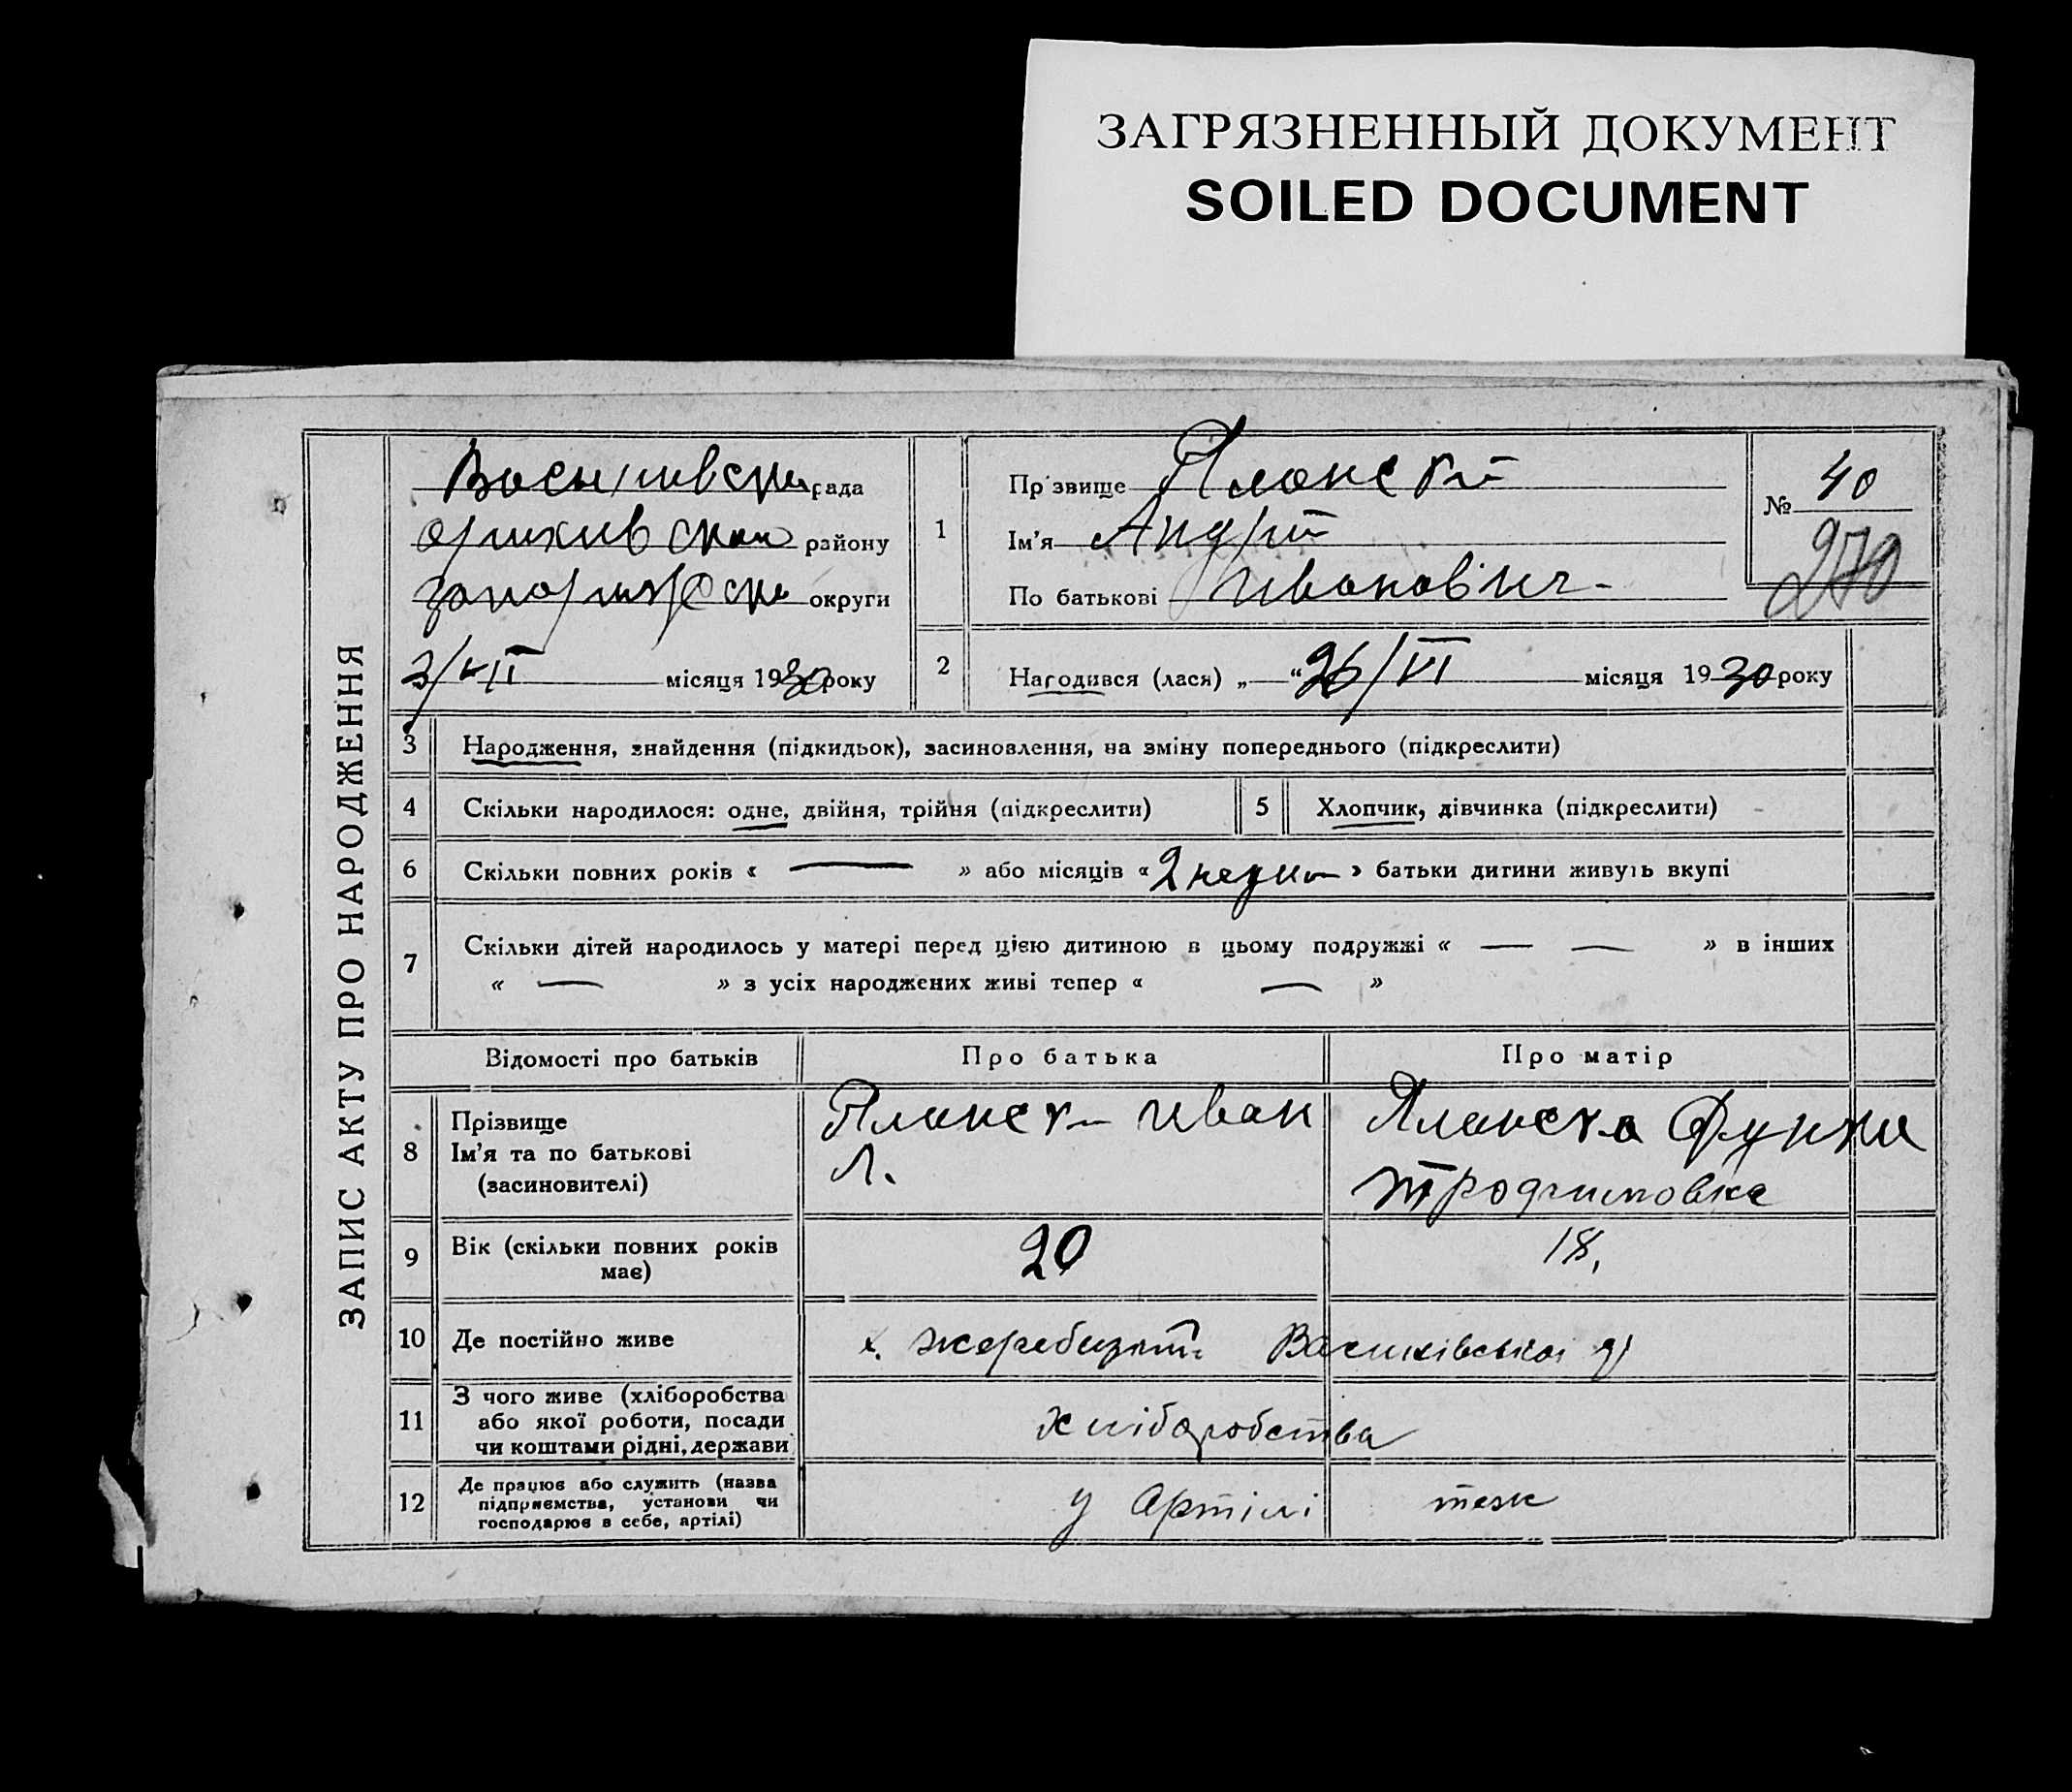 ЗАГРЯЗНЕННЫЙ ДОКУМЕНТ
SOILED DOCUMENT
ЗАПИС АКТУ ПРО НАРОДЖЕННЯ
рада
району
округи
3/VII місяця 1930 року
1
Прізвище
Ім'я Андрій
По батькові Иванович
№ 40
270
2 Народився (лася) „ “ 26/VI місяця 1930 року
3 Народження, знайдення (підкидьок), засиновлення, на зміну попереднього (підкреслити)
4 Скільки народилося: одне, двійня, трійня (підкреслити) 5 Хлопчик, дівчинка (підкреслити)
6 Скільки повних років « — » або місяців « 2 » батьки дитини живуть вкупі
7 Скільки дітей народилось у матері перед цією дитиною в цьому подружжі « — — » в інших
« — » з усіх народжених живі тепер « — »
Відомості про батьків Про батька Про матір
8 Прізвище
Ім'я та по батькові
(засиновителі)
Иван
Л.
9 Вік (скільки повних років має) 20 18,
10 Де постійно живе х.
11 З чого живе (хліборобства
або якої роботи, посади
чи коштами рідні, держави
хліборобства
12 Де працює або служить (назва
підприємства, установи чи
господарює в себе, артілі)
у Артілі теж